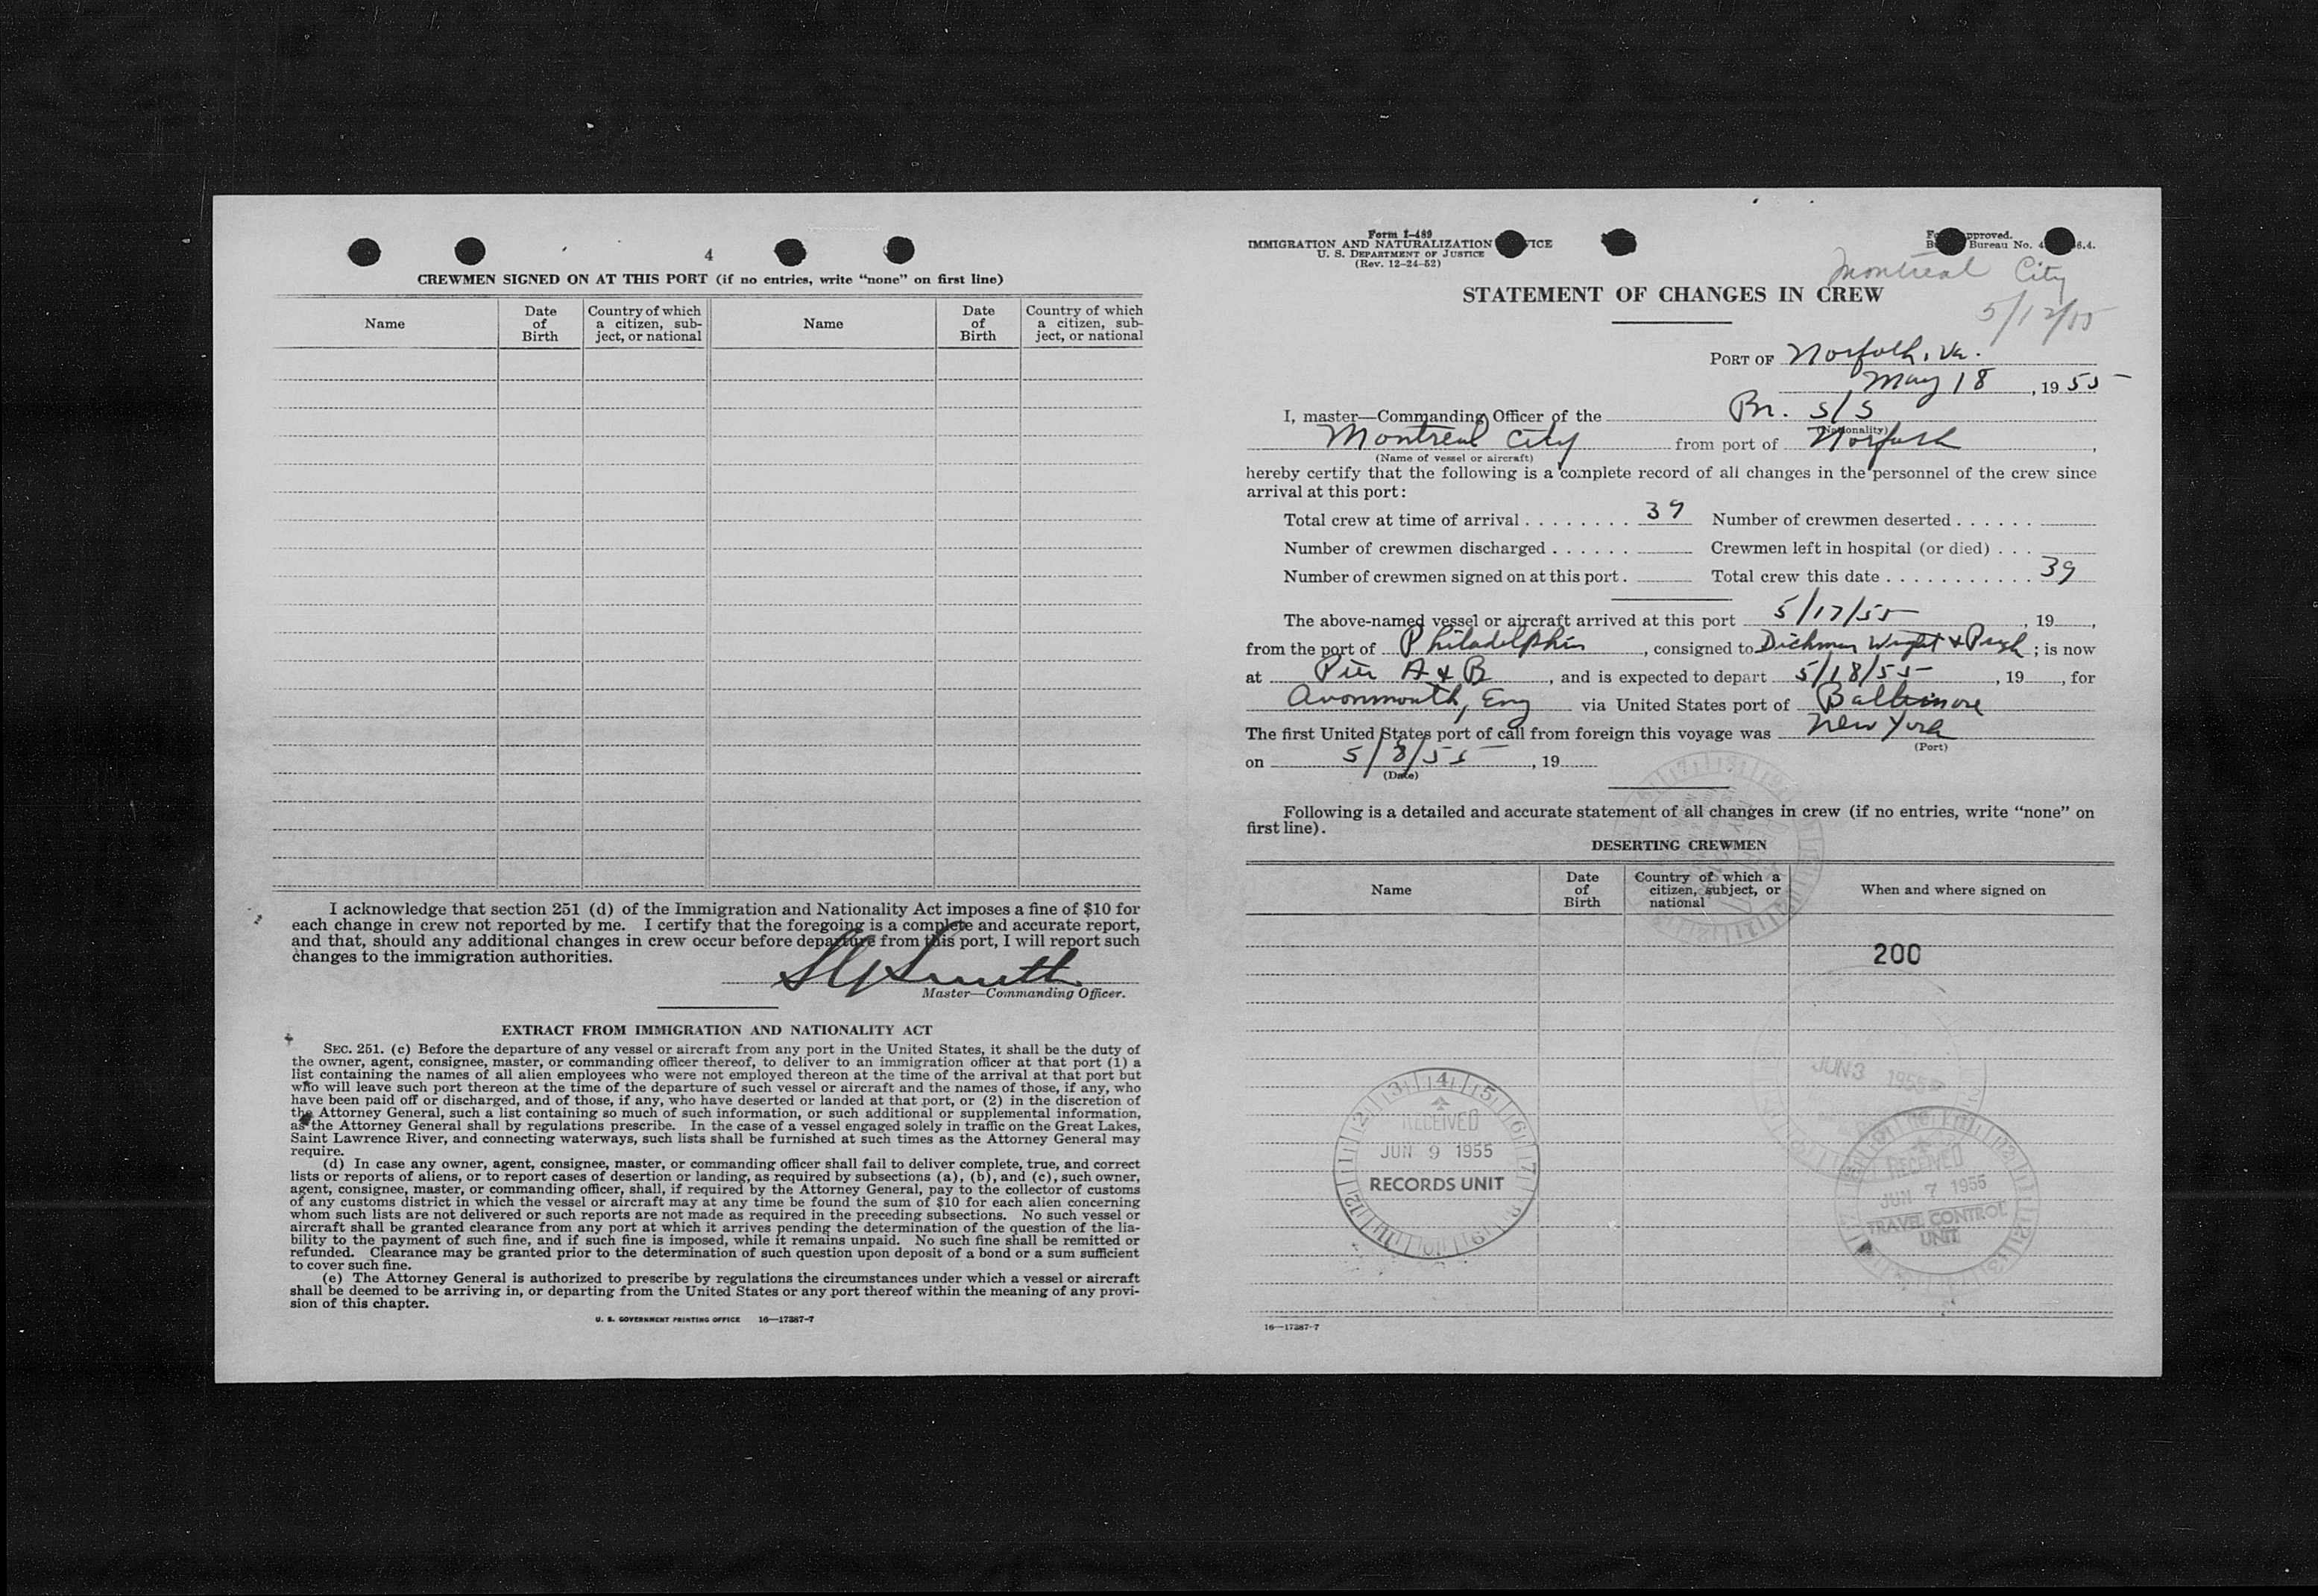 4
CREWMEN SIGNED ON AT THIS PORT (if no entries, write “none” on first line)
Name
Date of Birth
Country of which a citizen, sub-ject, or national
Name
Date of Birth
Country of which a citizen, sub-ject, or national
I acknowledge that section 251 (d) of the Immigration and Nationality Act imposes a fine of $10 for
each change in crew not reported by me. I certify that the foregoing is a complete and accurate report,
and that, should any additional changes in crew occur before departure from this port, I will report such
changes to the immigration authorities.
Smith
Master—Commanding Officer.
EXTRACT FROM IMMIGRATION AND NATIONALITY ACT
SEC. 251. (c) Before the departure of any vessel or aircraft from any port in the United States, it shall be the duty of
the owner, agent, consignee, master, or commanding officer thereof, to deliver to an immigration officer at that port (1) a
list containing the names of all alien employees who were not employed thereon at the time of the arrival at that port but
who will leave such port thereon at the time of the departure of such vessel or aircraft and the names of those, if any, who
have been paid off or discharged, and of those, if any, who have deserted or landed at that port, or (2) in the discretion of
the Attorney General, such a list containing so much of such information, or such additional or supplemental information,
as the Attorney General shall by regulations prescribe. In the case of a vessel engaged solely in traffic on the Great Lakes,
Saint Lawrence River, and connecting waterways, such lists shall be furnished at such times as the Attorney General may
require.
(d) In case any owner, agent, consignee, master, or commanding officer shall fail to deliver complete, true, and correct
lists or reports of aliens, or to report cases of desertion or landing, as required by subsections (a), (b), and (c), such owner,
agent, consignee, master, or commanding officer, shall, if required by the Attorney General, pay to the collector of customs
of any customs district in which the vessel or aircraft may at any time be found the sum of $10 for each alien concerning
whom such lists are not delivered or such reports are not made as required in the preceding subsections. No such vessel or
aircraft shall be granted clearance from any port at which it arrives pending the determination of the question of the lia-
bility to the payment of such fine, and if such fine is imposed, while it remains unpaid. No such fine shall be remitted or
refunded. Clearance may be granted prior to the determination of such question upon deposit of a bond or a sum sufficient
to cover such fine.
(e) The Attorney General is authorized to prescribe by regulations the circumstances under which a vessel or aircraft
shall be deemed to be arriving in, or departing from the United States or any port thereof within the meaning of any provi-
sion of this chapter.
U. S. GOVERNMENT PRINTING OFFICE 16—17387-7
Form I-489
IMMIGRATION AND NATURALIZATION
U. S. DEPARTMENT OF JUSTICE
(Rev. 12-24-52)
Bureau No.
Montreal City
5/12/55
STATEMENT OF CHANGES IN CREW
PORT OF Norfolk, Va.
May 18, 1955
I, master—Commanding Officer of the Br. S/S
(Nationality)
Montreal City from port of Norfolk,
(Name of vessel or aircraft)
hereby certify that the following is a complete record of all changes in the personnel of the crew since
arrival at this port:
Total crew at time of arrival . . . . . . . . 39 Number of crewmen deserted . . . . . .
Number of crewmen discharged . . . . . . Crewmen left in hospital (or died) . . .
Number of crewmen signed on at this port . Total crew this date . . . . . . . . . . . . 39
The above-named vessel or aircraft arrived at this port 5/17/55, 19 ,
from the port of Philadelphia, consigned to Dichman Wright & Pugh; is now
at Pier A & B, and is expected to depart 5/18/55, 19 , for
Avonmouth, Eng via United States port of Baltimore
The first United States port of call from foreign this voyage was New York
(Port)
on 5/8/55, 19
(Date)
Following is a detailed and accurate statement of all changes in crew (if no entries, write “none” on
first line).
DESERTING CREWMEN
Name
Date of Birth
Country of which a citizen, subject, or national
When and where signed on
200
JUN 3 1955
RECEIVED
JUN 9 1955
RECORDS UNIT
RECEIVED
JUN 7 1955
TRAVEL CONTROL
UNIT
16—17387-7